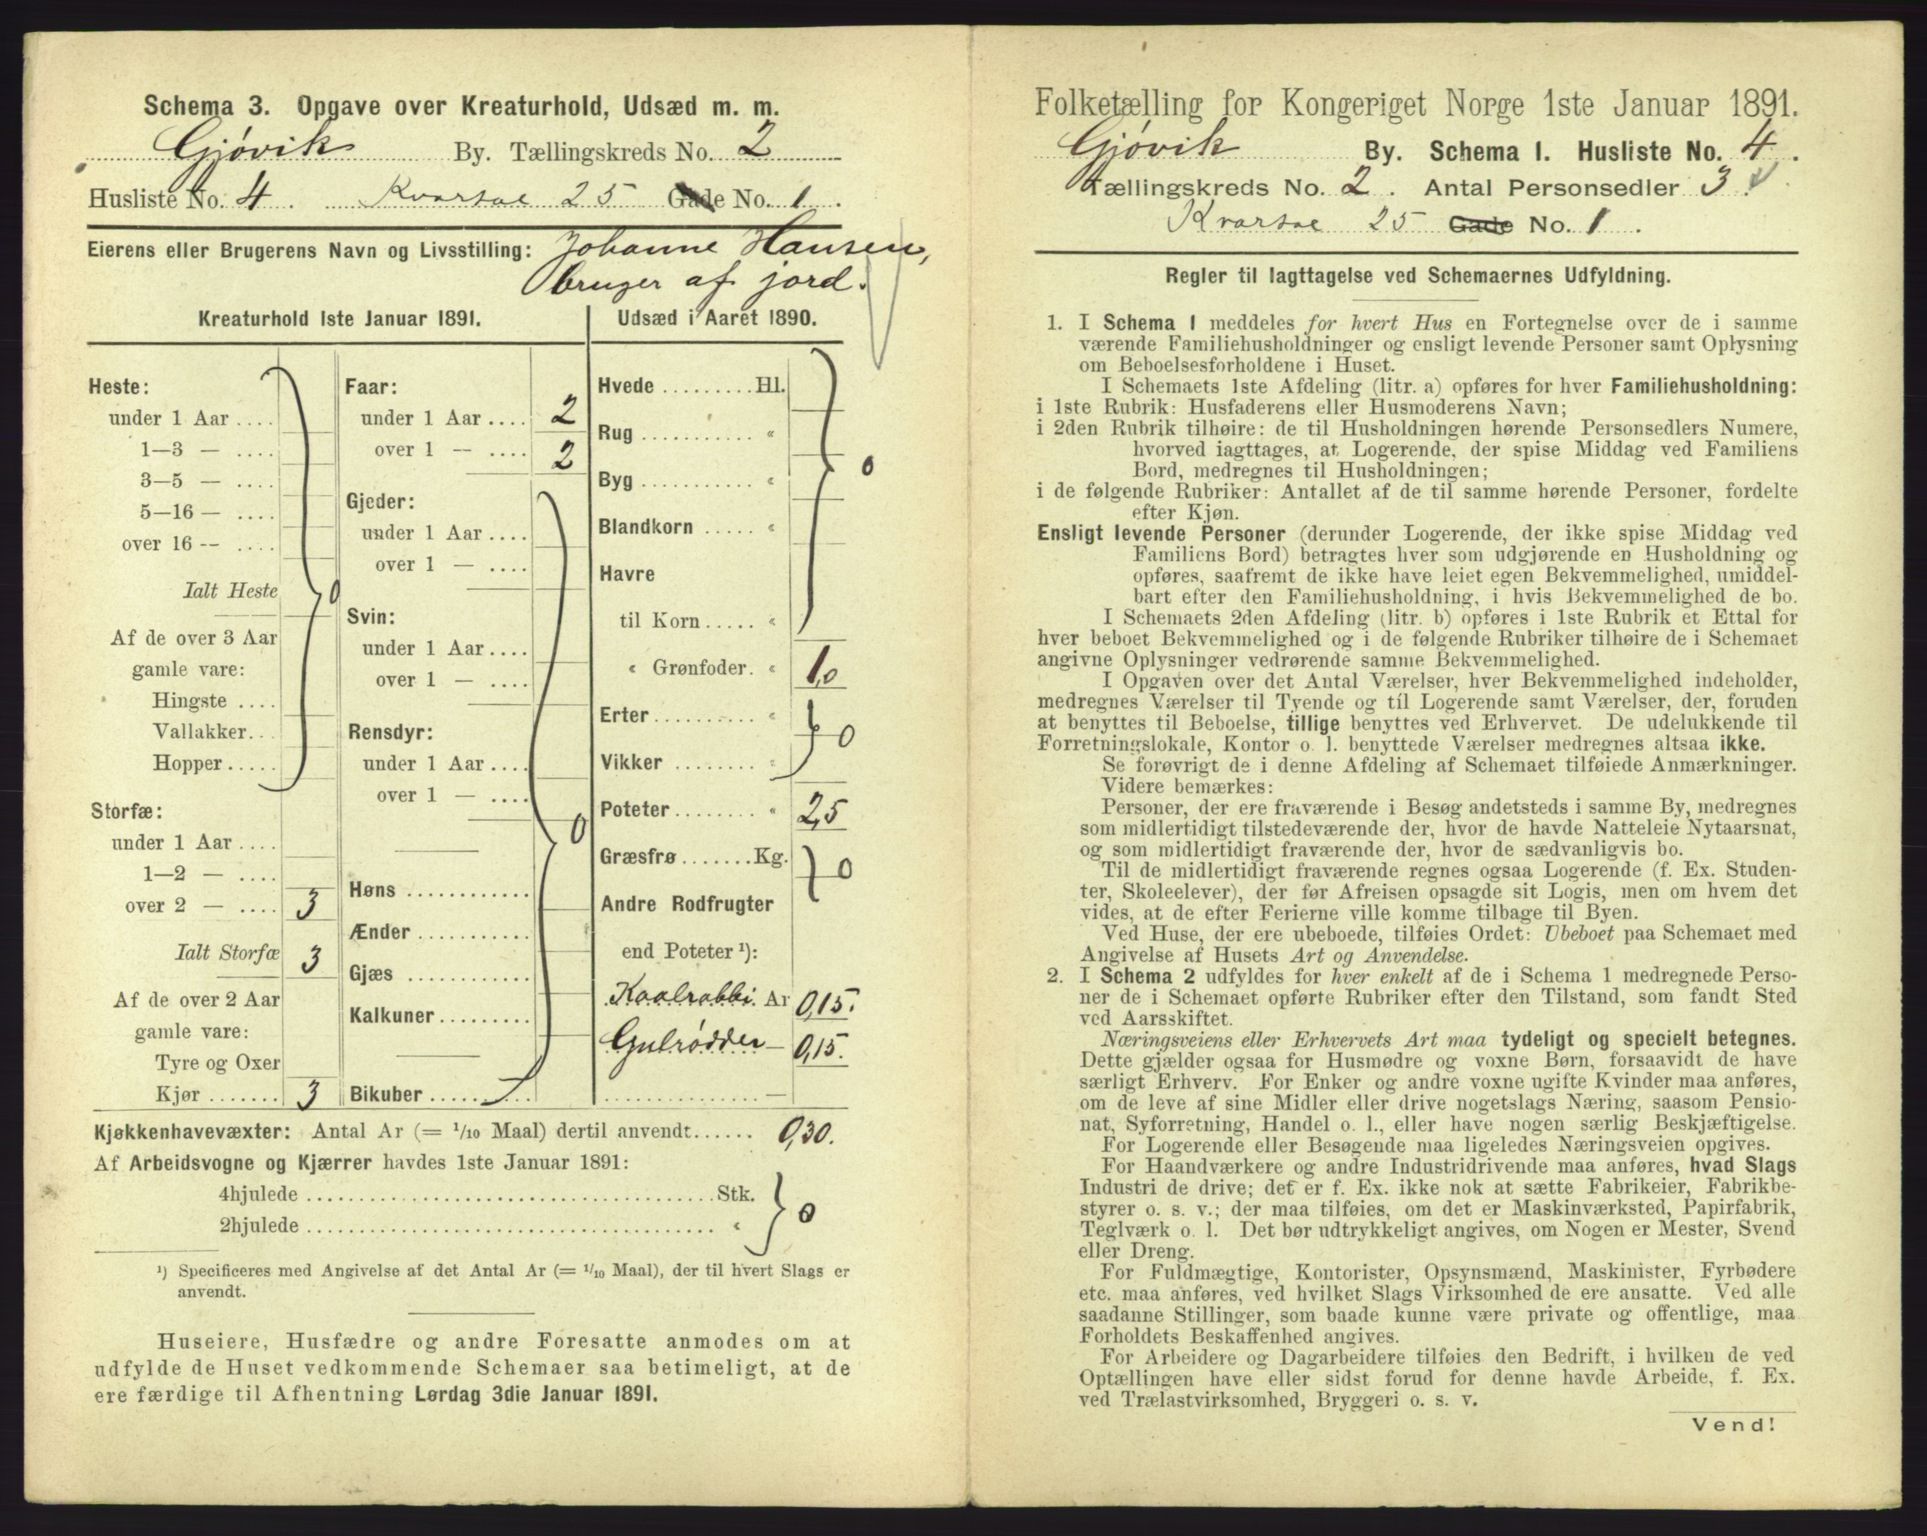 Schema 3. Opgave over Kreaturhold, Udsæd m. m.
Gjövik By. Tællingskreds No. 2
Husliste No. 4. Gade No. 1.
Eierens eller Brugerens Navn og Livsstilling: Johanne Hansen,
bruger af jord.
Kreaturhold 1ste Januar 1891.
Heste:
under 1 Aar ....
1—3 — ....
3—5 — ....
5—16 — ....
over 16 -- ....
Ialt Heste 0
Af de over 3 Aar
gamle vare:
Hingste ....
Vallakker...
Hopper .....
Storfæ:
under 1 Aar ....
1—2 — ....
over 2 — .... 3
Ialt Storfæ 3
Af de over 2 Aar
gamle vare:
Tyre og Oxer
Kjør ....... 3
Faar:
under 1 Aar .... 2
over 1 — .... 2
Gjeder:
under 1 Aar ....
over 1 — ....
Svin:
under 1 Aar ....
over 1 — ....
Rensdyr:
under 1 Aar ....
over 1 — ....
0
Høns ............
Ænder ...........
Gjæs ............
Kalkuner.........
Bikuber ..........
Udsæd i Aaret 1890.
Hvede .........Hl.
Rug ........... "
Byg ........... "
Blandkorn ..... "
0
Havre
til Korn ..... "
" Grønfoder. " 1,0
Erter .......... "
Vikker ........ " 0
Poteter ........ " 2,5
Græsfrø .......Kg. 0
Andre Rodfrugter
end Poteter ¹):
Kaalrabbi. Ar 0,15.
Gulrødder — 0,15.
.................. —
Kjøkkenhavevæxter: Antal Ar (= 1/10 Maal) dertil anvendt...... 0,30.
Af Arbeidsvogne og Kjærrer havdes 1ste Januar 1891:
4hjulede ........................................Stk.
2hjulede ........................................ "
0
¹) Specificeres med Angivelse af det Antal Ar (= 1/10 Maal), der til hvert Slags er
anvendt.
Huseiere, Husfædre og andre Foresatte anmodes om at
udfylde de Huset vedkommende Schemaer saa betimeligt, at de
ere færdige til Afhentning Lørdag 3die Januar 1891.
Folketælling for Kongeriget Norge 1ste Januar 1891.
Gjövik By. Schema 1. Husliste No. 4.
Tællingskreds No. 2. Antal Personsedler 3.
25 Gade No. 1.
Regler til Iagttagelse ved Schemaernes Udfyldning.
1. I Schema 1 meddeles for hvert Hus en Fortegnelse over de i samme
værende Familiehusholdninger og ensligt levende Personer samt Oplysning
om Beboelsesforholdene i Huset.
I Schemaets 1ste Afdeling (litr. a) opføres for hver Familiehusholdning:
i 1ste Rubrik: Husfaderens eller Husmoderens Navn;
i 2den Rubrik tilhøire: de til Husholdningen hørende Personsedlers Numere,
hvorved iagttages, at Logerende, der spise Middag ved Familiens
Bord, medregnes til Husholdningen;
i de følgende Rubriker: Antallet af de til samme hørende Personer, fordelte
efter Kjøn.
Ensligt levende Personer (derunder Logerende, der ikke spise Middag ved
Familiens Bord) betragtes hver som udgjørende en Husholdning og
opføres, saafremt de ikke have leiet egen Bekvemmelighed, umiddel-
bart efter den Familiehusholdning, i hvis Bekvemmelighed de bo.
I Schemaets 2den Afdeling (litr. b) opføres i 1ste Rubrik et Ettal for
hver beboet Bekvemmelighed og i de følgende Rubriker tilhøire de i Schemaet
angivne Oplysninger vedrørende samme Bekvemmelighed.
I Opgaven over det Antal Værelser, hver Bekvemmelighed indeholder,
medregnes Værelser til Tyende og til Logerende samt Værelser, der, foruden
at benyttes til Beboelse, tillige benyttes ved Erhvervet. De udelukkende til
Forretningslokale, Kontor o. l. benyttede Værelser medregnes altsaa ikke.
Se forøvrigt de i denne Afdeling af Schemaet tilføiede Anmærkninger.
Videre bemærkes:
Personer, der ere fraværende i Besøg andetsteds i samme By, medregnes
som midlertidigt tilstedeværende der, hvor de havde Natteleie Nytaarsnat,
og som midlertidigt fraværende der, hvor de sædvanligvis bo.
Til de midlertidigt fraværende regnes ogsaa Logerende (f. Ex. Studen-
ter, Skoleelever), der før Afreisen opsagde sit Logis, men om hvem det
vides, at de efter Ferierne ville komme tilbage til Byen.
Ved Huse, der ere ubeboede, tilføies Ordet: Ubeboet paa Schemaet med
Angivelse af Husets Art og Anvendelse.
2. I Schema 2 udfyldes for hver enkelt af de i Schema 1 medregnede Perso-
ner de i Schemaet opførte Rubriker efter den Tilstand, som fandt Sted
ved Aarsskiftet.
Næringsveiens eller Erhvervets Art maa tydeligt og specielt betegnes.
Dette gjælder ogsaa for Husmødre og voxne Børn, forsaavidt de have
særligt Erhverv. For Enker og andre voxne ugifte Kvinder maa anføres,
om de leve af sine Midler eller drive nogetslags Næring, saasom Pensio-
nat, Syforretning, Handel o. l., eller have nogen særlig Beskjæftigelse.
For Logerende eller Besøgende maa ligeledes Næringsveien opgives.
For Haandværkere og andre Industridrivende maa anføres, hvad Slags
Industri de drive; det er f. Ex. ikke nok at sætte Fabrikeier, Fabrikbe-
styrer o. s. v.; der maa tilføies, om det er Maskinværksted, Papirfabrik,
Teglværk o. l. Det bør udtrykkeligt angives, om Nogen er Mester, Svend
eller Dreng.
For Fuldmægtige, Kontorister, Opsynsmænd, Maskinister, Fyrbødere
etc. maa anføres, ved hvilket Slags Virksomhed de ere ansatte. Ved alle
saadanne Stillinger, som baade kunne være private og offentlige, maa
Forholdets Beskaffenhed angives.
For Arbeidere og Dagarbeidere tilføies den Bedrift, i hvilken de ved
Optællingen have eller sidst forud for denne havde Arbeide, f. Ex.
ved Trælastvirksomhed, Bryggeri o. s. v.
Vend!